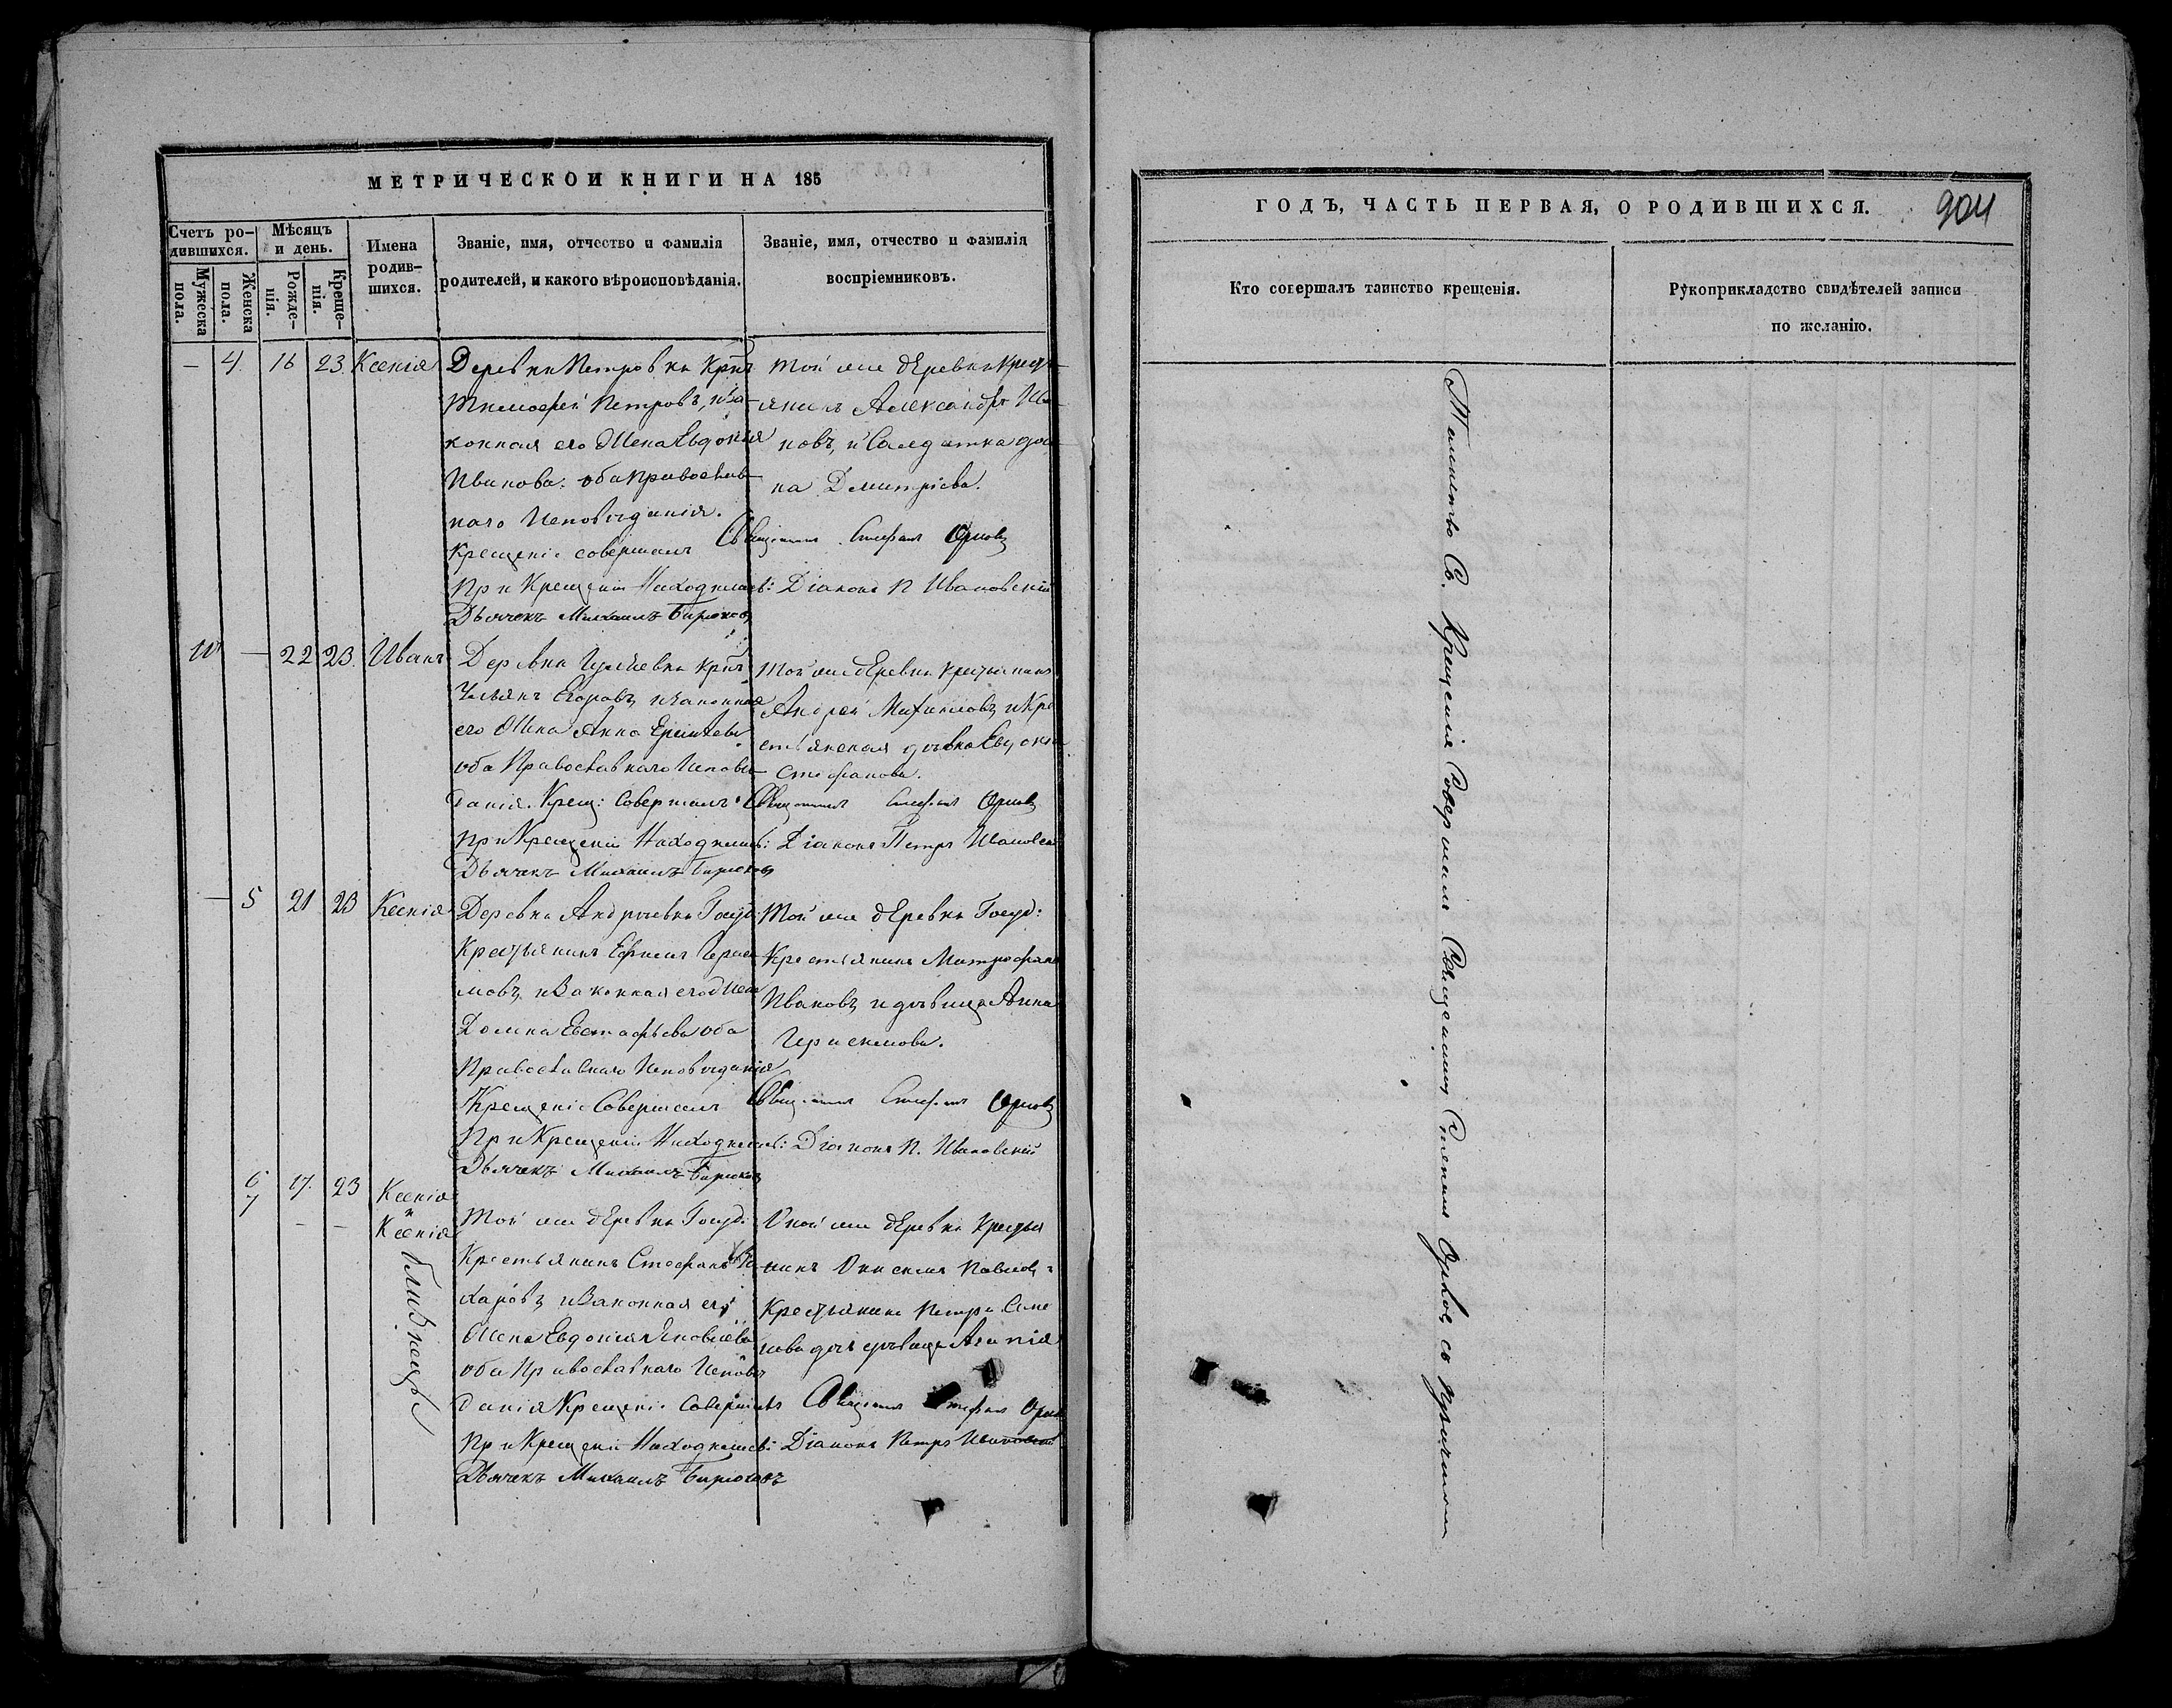 МЕТРИЧЕСКОЙ КНИГИ НА 185
Счетъ ро-
дившихся.
Мужеска
пола.
Женска
пола.
Мѣсяцъ
и день.
Рожде-
нія.
Креще-
нія.
Имена
родив-
шихся.
Званіе, имя, отчество и фамилія
родителей, и какого вѣроисповѣданія.
Званіе, имя, отчество и фамилія
воспріемниковъ.
— 4. 16 23. Ксенія
Деревни Петровки
Тимофей Петровъ, и за-
конная его жена Евдокія
Иванова. оба православ-
наго исповѣданія.
Той же деревни Крест-
янинъ Александръ Ива-
новъ, и Солдатка
Дмитріева.
Крещеніе совершалъ Священникъ Стефанъ Орловъ
При Крещеніи Находились: Діаконъ П Ивановскій
Дьячекъ Михаилъ Бирюковъ
10 — 22 23. Иванъ
Деревни
Егоровъ и законная
его жена Анна
оба Православнаго Исповѣ-
данія. Крещ: Совершалъ Священникъ Стефанъ Орловъ
Той же деревни крестьянинъ
Андрей Михаиловъ и Кре-
стьянская дѣвка Евдокія
Стефанова.
При Крещеніи Находились: Діаконъ Петръ Ивановскій
Дьячекъ Михаилъ Бирюковъ
— 5 21 23 Ксенія
Деревни Андреевки Госуд:
Крестьянинъ Ефимъ Гераси-
мовъ и Законная его жена
Домна Евстафьева оба
Православнаго Исповѣданія
Той же деревни Госуд:
Крестьянинъ Митрофанъ
Ивановъ и дѣвица Анна
Герасимова.
Крещеніе Совершалъ Священникъ Стефанъ Орловъ
При Крещеніи Находились: Діаконъ П. Ивановскій
Дьячекъ Михаилъ Бирюковъ
6 17. 23 Ксенія
7 — — и
Ксенія
близнецы
Той же деревни Госуд:
Крестьянинъ Стефанъ За-
харовъ и Законная его
жена Евдокия Яковлева
оба Православнаго Исповѣ-
Оной же деревни Крестья
нинъ Онисимъ Павловъ
Крестьянина Петра Семе
нова дочь дѣвица
данія Крещеніе Совершалъ Священникъ Стефанъ Орловъ
При Крещеніи Находились: Діаконъ Петръ Ивановскій
Дьячекъ Михаилъ Бирюковъ
ГОДЪ, ЧАСТЬ ПЕРВАЯ, О РОДИВШИХСЯ.
904
Кто совершалъ таинство крещенія.
Рукоприкладство свидѣтелей записи
по желанію.
Таинство Св. Крещенія Совершалъ Священникъ Стефанъ Орловъ съ причтомъ